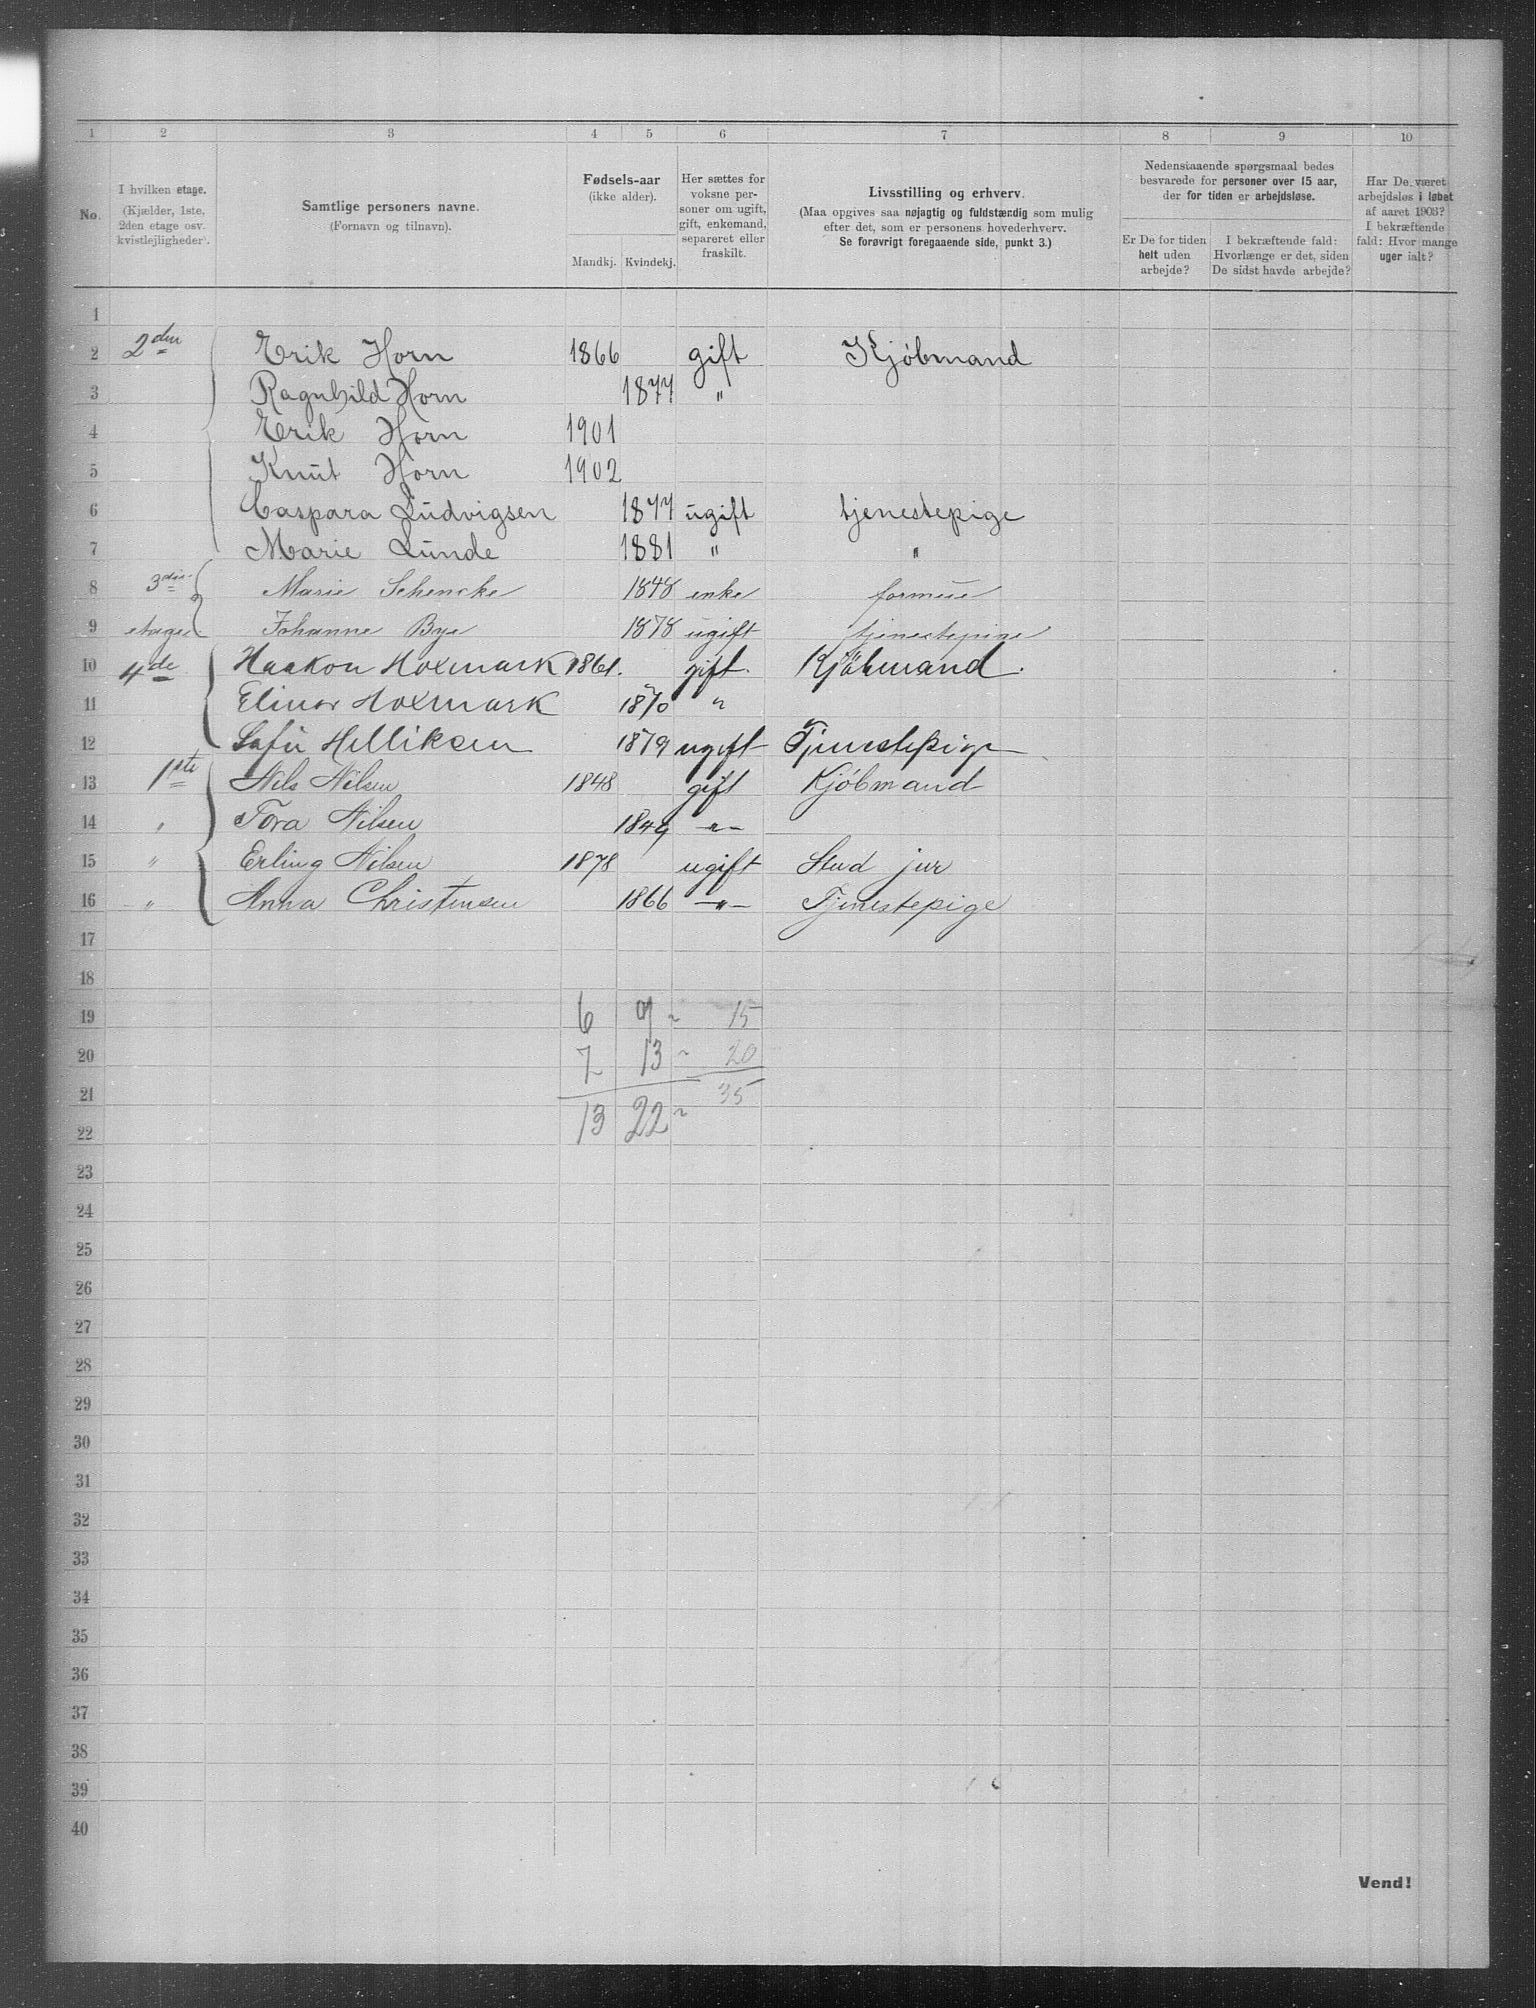 1 2 3 4 5 6 7 8 9 10
No.
I hvilken etage.
(Kjælder, 1ste,
2den etage osv.
kvistlejligheder).
Samtlige personers navne.
(Fornavn og tilnavn).
Fødsels-aar
(ikke alder).
Mandkj. Kvindekj.
Her sættes for
voksne per-
soner om ugift,
gift, enkemand,
separeret eller
fraskilt.
Livsstilling og erhverv.
(Maa opgives saa nøjagtig og fuldstændig som mulig
efter det, som er personens hovederhverv.
Se forøvrigt foregaaende side, punkt 3.)
Nedenstaaende spørgsmaal bedes
besvarede for personer over 15 aar,
der for tiden er arbejdsløse.
Er De for tiden
helt uden
arbejde?
I bekræftende fald:
Hvorlænge er det, siden
De sidst havde arbejde?
Har De været
arbejdsløs i løbet
af aaret 1903?
I bekræftende
fald: Hvor mange
uger ialt?
1
2 2den Erik Horn 1866 gift Kjøbmand
3 Ragnhild Horn 1877 "
4 Erik Horn 1901
5 Knut Horn 1902
6 Caspara Ludvigsen 1877 ugift tjenestepige
7 Marie Lunde 1881 " "
8 3die Marie Schencke 1848 enke formue
9 etage Johanne Bye 1878 ugift tjenestepige
10 4de Haakon Hoxmark 1861. gift. Kjöbmand.
11 Elinor Hoxmark 1870 "
12 Helliksen 1879 ugift Tjenestepige
13 1ste Nils Nilsen 1848 gift Kjøbmand
14 " Tora Nilsen 1849 -"-
15 " Erling Nilsen 1878 ugift Stud jur
16 " Anna Christensen 1866 -"- Tjenestepige
17
18
19 6 9 ~ 15
20 7 13 ~ 20
21 35
22 13 22 ~
23
24
25
26
27
28
29
30
31
32
33
34
35
36
37
38
39
40
Vend!